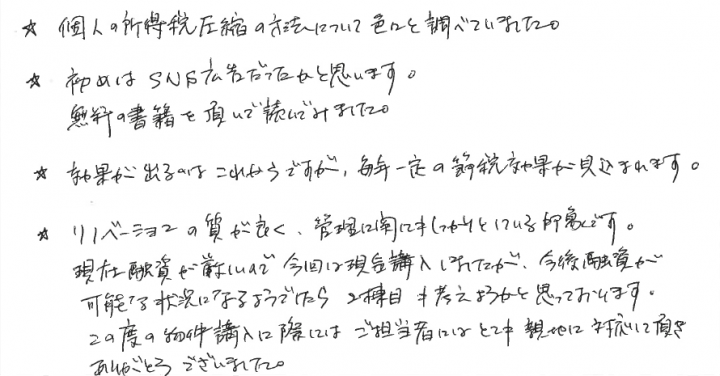 ☆ 個人の所得税圧縮の方法について色々と調べていました。
☆ 初めはSNS広告だったかと思います。
無料の書籍を頂いて読んでみました。
☆ 効果が出るのはこれからですが、毎年一定の節税効果が見込まれます。
☆ リノベーションの質が良く、管理に関してもしっかりとしている印象です。
現在融資が難しいので今回は現金購入しましたが、今後融資が
可能な状況になるようでしたら 2棟目も考えようかと思っております。
この度の物件購入に際してはご担当者にはとても親切に対応して頂き
ありがとうございました。